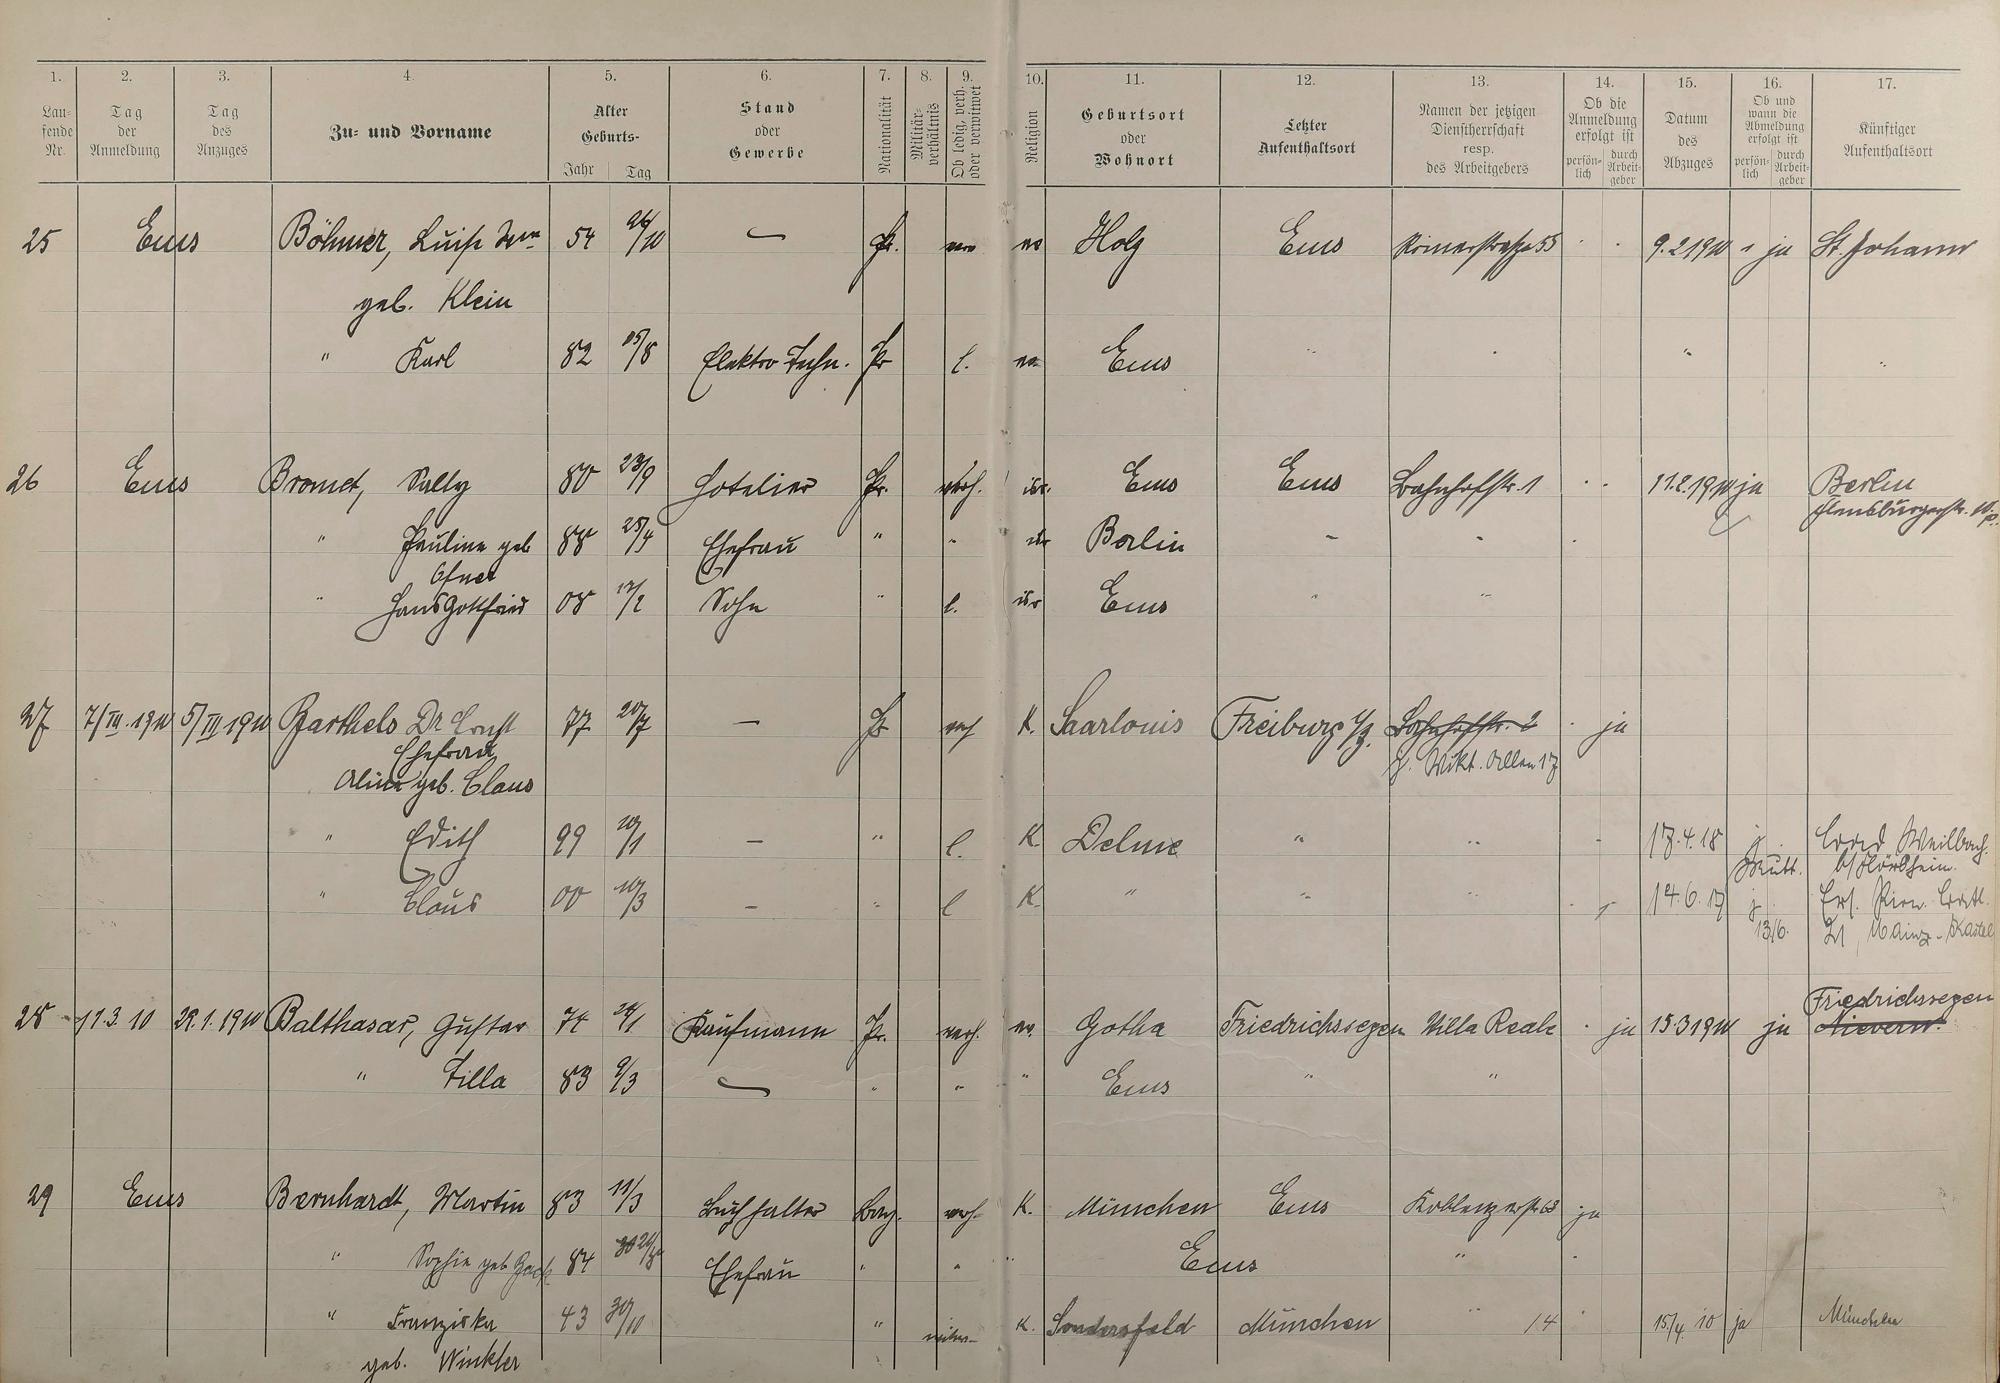 1. 2. 3. 4. 5. 6. 7. 8. 9. 10. 11. 12. 13. 14. 15. 16. 17.
Lau-
fende
Nr.
Tag
der
Anmeldung
Tag
des
Anzuges
Zu- und Vorname
Alter
Geburts-
Jahr Tag
Stand
oder
Gewerbe
Nationalität
Militär-
verhältnis
Ob ledig, verh.
oder verwitwet
Religion
Geburtsort
oder
Wohnort
Letzter
Aufenthaltsort
Namen der jetzigen
Dienstherrschaft
resp.
des Arbeitgebers
Ob die
Anmeldung
erfolgt ist
persön-
lich
durch
Arbeit-
geber
Datum
des
Abzuges
Ob und
wann die
Abmeldung
erfolgt ist
persön-
lich
durch
Arbeit-
geber
Künftiger
Aufenthaltsort
25 Ems Böhmer, Luise 54 Pr. Holz Ems Römerstraße 55 9.2.1910 " ja St. Johann
geb. Klein
" Karl 82 15/8 Elektro Techn. Pr l. ev. Ems " " " "
26 Ems Bromet, Sally 80 23/9 Hotelier Pr. verh. isr. Ems Ems Bahnhofstr. 1 11.2.1910 ja Berlin
Flensburgerstr.
" Pauline geb 88 25/4 Ehefrau " " isr Berlin
" Hans Gottfried 08 17/2 Sohn " l. isr Ems " "
27 7/III.1910 5/III 1910 Barthels Dr Ernst 77 20/7 — Pr verh K. Saarlouis Freiburg Bahnhofstr. 2 ja
Ehefrau
j. Vikt. Allee 17
Aline geb. Claus
" Edith 99 10/1 — " l. K. Delme " " 17.4.18 j. Weilbach
Mutt. b/Flörsheim
" Claus 00 10/3 — " l K " " 14.6.17 j.
13/6. Mainz-Kastel
Friedrichssegen
28 11.3.10 29.1.1910 Balthasar, Gustav 74 Kaufmann Pr. verh. ev. Gotha Friedrichssegen Villa Reale ja 15.3.1910 ja Nievern.
" Tilla 83 9/3 — " " " Ems " "
29 Ems Bernhardt, Martin 83 11/3 Buchhalter Bay. verh. K. München Ems Koblenzerstr 63 ja
" Sophie geb 84 Ehefrau " " " Ems "
" Franziska 43 30/10 " witwe K. Sondersfeld München " 14 15/4. 10 ja München
geb. Winkler